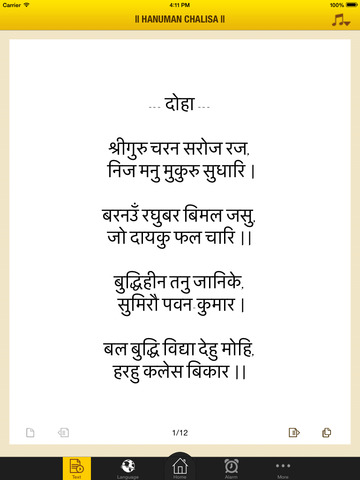 Carrier 4:11 PM 100%
|| HANUMAN CHALISA ||
--- दोहा ---
श्रीगुरु चरन सरोज रज,
निज मनु मुकुरु सुधारि |
बरनउँ रघुबर बिमल जसु,
जो दायकु फल चारि ||
बुद्धिहीन तनु जानिके,
सुमिरौ पवन-कुमार |
बल बुद्धि विद्या देहु मोहि,
हरहु कलेस बिकार ||
1/12
Text Language Home Alarm More